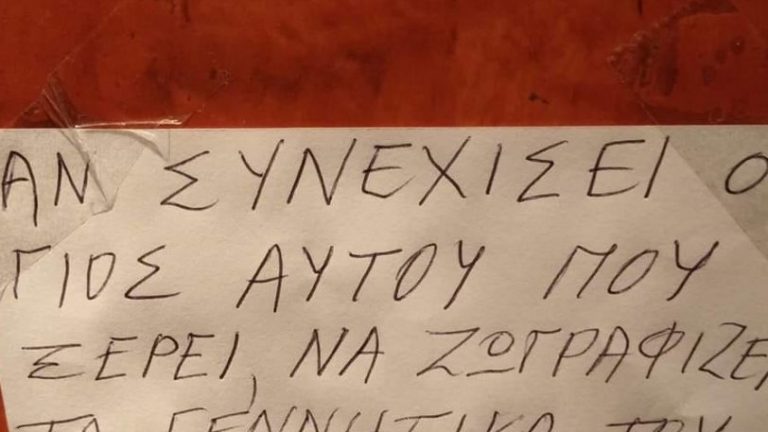 ΑΝ ΣΥΝΕΧΙΣΕΙ Ο
ΓΙΟΣ ΑΥΤΟΥ ΠΟΥ
ΞΕΡΕΙ, ΝΑ ΖΩΓΡΑΦΙΖΕΙ
ΤΑ ΓΕΝΝΗΤΙΚΑ ΤΟΥ